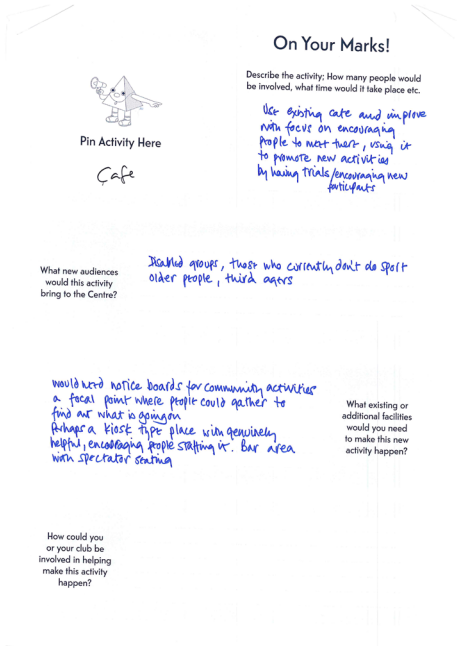 On Your Marks!
Describe the activity; How many people would
be involved, what time would it take place etc.
Pin Activity Here
Cafe
Use existing cafe and improve
with focus on encouraging
people to meet there, using it
to promote new activities
by having trials/encouraging new
participants
What new audiences
would this activity
bring to the Centre?
Disabled groups, those who currently don't do sport
older people, third agers
would need notice boards for community activities
a focal point where people could gather to
find out what is going on
Perhaps a kiosk type place with genuinely
helpful, encouraging people staffing it. Bar area
with spectator seating
What existing or
additional facilities
would you need
to make this new
activity happen?
How could you
or your club be
involved in helping
make this activity
happen?